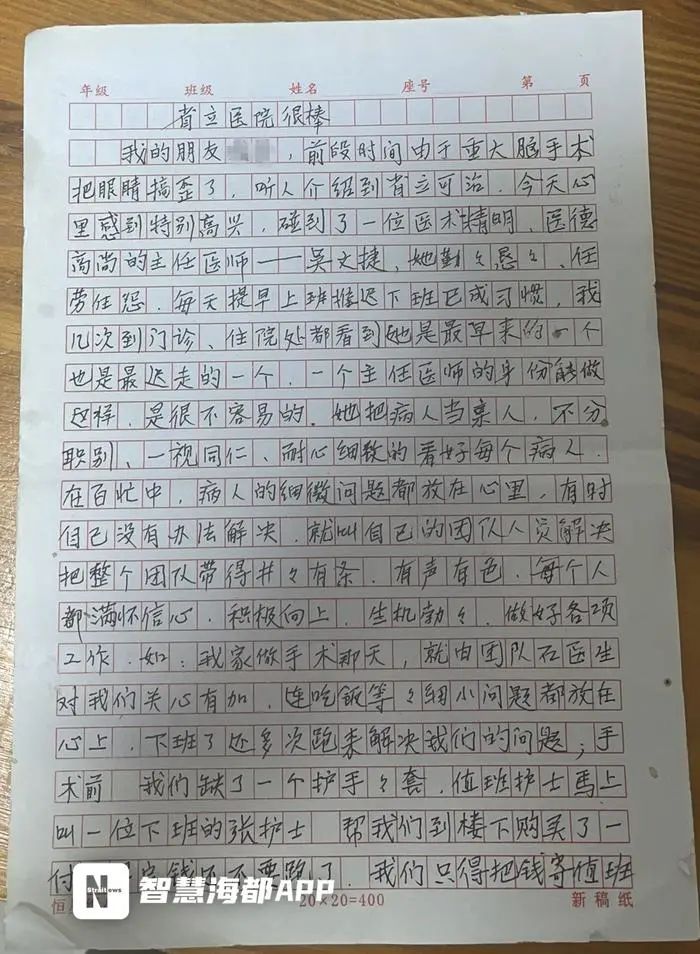 年级 班级 姓名 座号 第 页
省立医院很棒
我的朋友 ，前段时间由于重大脑手术
把眼睛搞歪了，听人介绍到省立可治．今天心
里感到特别高兴，碰到了一位医术精明、医德
高尚的主任医师——吴文捷，她勤々恳々、任
劳任怨．每天提早上班推迟下班已成习惯，我
几次到门诊、住院处都看到她是最早来的一个
也是最迟走的一个．一个主任医师的身份能做
这样，是很不容易的．她把病人当亲人，不分
职别、一视同仁、耐心细致的看好每个病人．
在百忙中，病人的细微问题都放在心里，有时
自己没有办法解决．就叫自己的团队人员解决
把整个团队带得井々有条．有声有色．每个人
都满怀信心．积极向上．生机勃々．做好各项
工作．如：我家做手术那天，就由团队石医生
对我们关心有加．连吃饭等々细小问题都放在
心上．下班了还多次跑来解决我们的问题；手
术前 我们缺了一个护手々套．值班护士马上
叫一位下班的张护士 帮我们到楼下购买了一
付 钱 不要跑了．我们只得把钱寄值班
恒 20×20=400 新稿纸
N
Straitnews
智慧海都APP